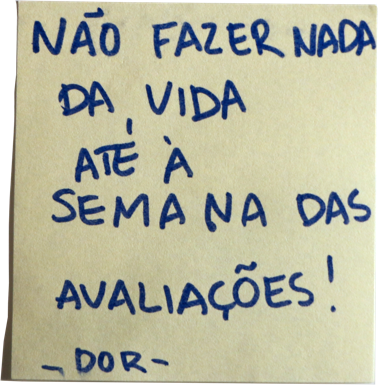 NÃO FAZER NADA
DA VIDA
ATÉ À
SEMANA DAS
AVALIAÇÕES!
- DOR -